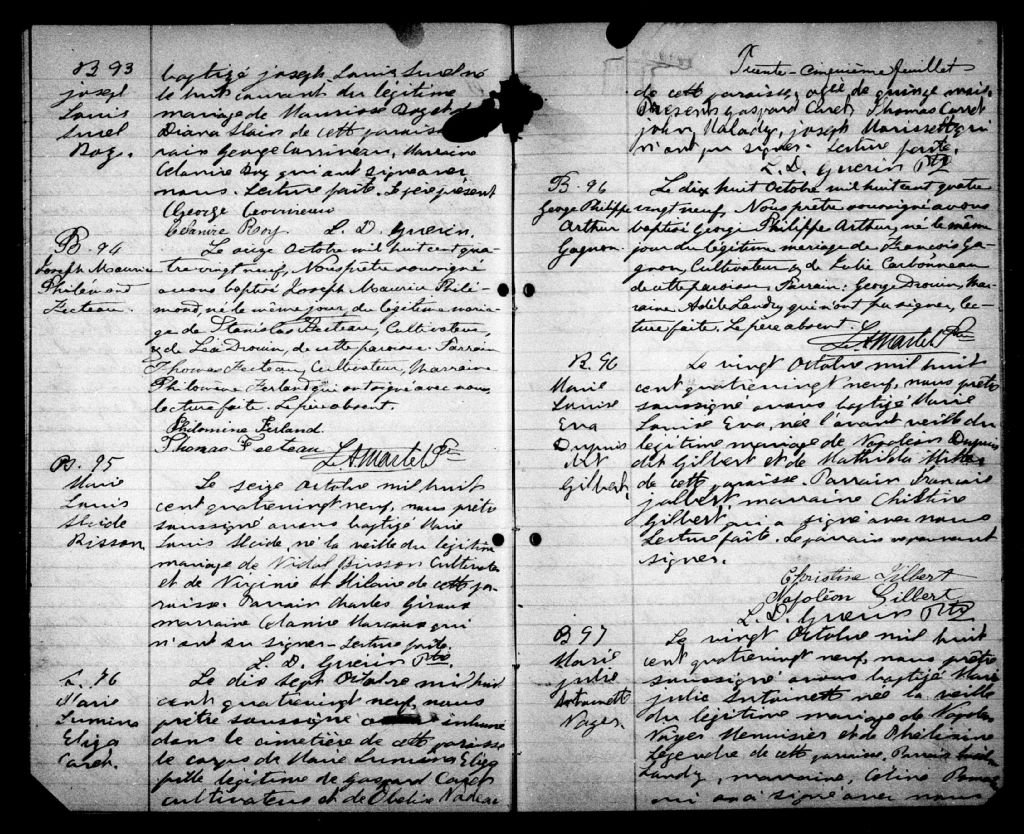 B 93
joseph
Louis
Roy.
baptizé joseph Louis
le huit courant du légitime
mariage de Maurisse Roy et
Diana Blais de cette paroisse
rain George Marraine
Clanire Roy qui ont signé avec
nous. Lecture faite. Le père présent
George
Clanire Roy. L. D. Guerin.
B. 94
Joseph Maurice
Philémond
Fecteau.
Le seize Octobre mil huit cent qua-
tre vingt neuf, Nous prêtre soussigné
avons baptisé Joseph Maurice Philé-
mond, né le même jour, du légitime maria-
ge de Stanislas Fecteau, Cultivateur,
& de Léa Drouin, de cette paroisse. Parrain
Thomas Fecteau, Cultivateur, Marraine
Philomène Ferland qui ont signé avec nous,
lecture faite. Le père absent.
Philomine Ferland
Thomas Fecteau L. A Martel Ptre
B. 95
Marie
Louis
Alcide
Bisson
Le seize Octobre mil huit
cent quatrevingt neuf, nous prêtre
soussigné avons baptizé Marie
Louis Alcide, né la veille du légitime
mariage de Vidal Bisson Cultivateur
et de Virginie St Hilaire de cette pa-
roisse. Parrain Charles Giroux
marraine Marcoux qui
n'ont su signer. Lecture faite.
L. D. Guerin Ptre.
S. 76
Marie
Lumina
Eliza
Caret.
Le dix sept Octobre mil huit
cent quatrevingt neuf, nous
prêtre soussigné inhumé
dans le cimetière de cette paroisse
le corps de Marie Lumina Eliza
fille légitime de Gaspard Caret
cultivateur et de Obeline Nadeau
Trente-Cinquième feuillet
de cette paroisse, agée de quinze mois.
Présents gaspard Caret Thomas Caret
john Malady, joseph Marissette qui
n'ont pu signer. Lecture faite.
L. D. Guerin Ptre
B. 96
George Philippe
Arthur
Gagnon.
Le dix huit Octobre mil huit cent quatre
vingt neuf, Nous prêtre soussigné avons
baptisé George Philippe Arthur, né le même
jour du légitime mariage de François Ga-
gnon, Cultivateur & de Julie Carbonneau
de cette paroisse. Parrain: George Drouin, Mar-
raine Adèle Landry qui n'ont pu signer, lec-
ture faite. Le père absent.
L. A Martel Ptre
B. 96
Marie
Louise
Eva
Dupuis
dit
Gilbert.
Le vingt Octobre mil huit
cent quatrevingt neuf, nous prêtre
soussigné avons baptizé Marie
Louise Eva, née l'avant veille du
légitime mariage de Napoléon Dupuis
dit Gilbert et de Mathilda
de cette paroisse. Parrain Francois
jalbert, marraine Christine
Gilbert, qui a signé avec nous
Lecture faite. Le parrain ne pouvant
signer.
Christine Gilbert
Napoléon Gilbert
L. D. Guerin Ptre
B 97
Marie
julie
Antoinette
Le vingt Octobre mil huit
cent quatrevingt neuf, nous prêtre
soussigné avons baptizé Marie
julie Antoinett née la veille
du légitime mariage de Napoléon
Menuisier et de Phélisine
Légendre de cette paroisse, Parrain
Landry, marraine, Celina
qui ont signé avec nous